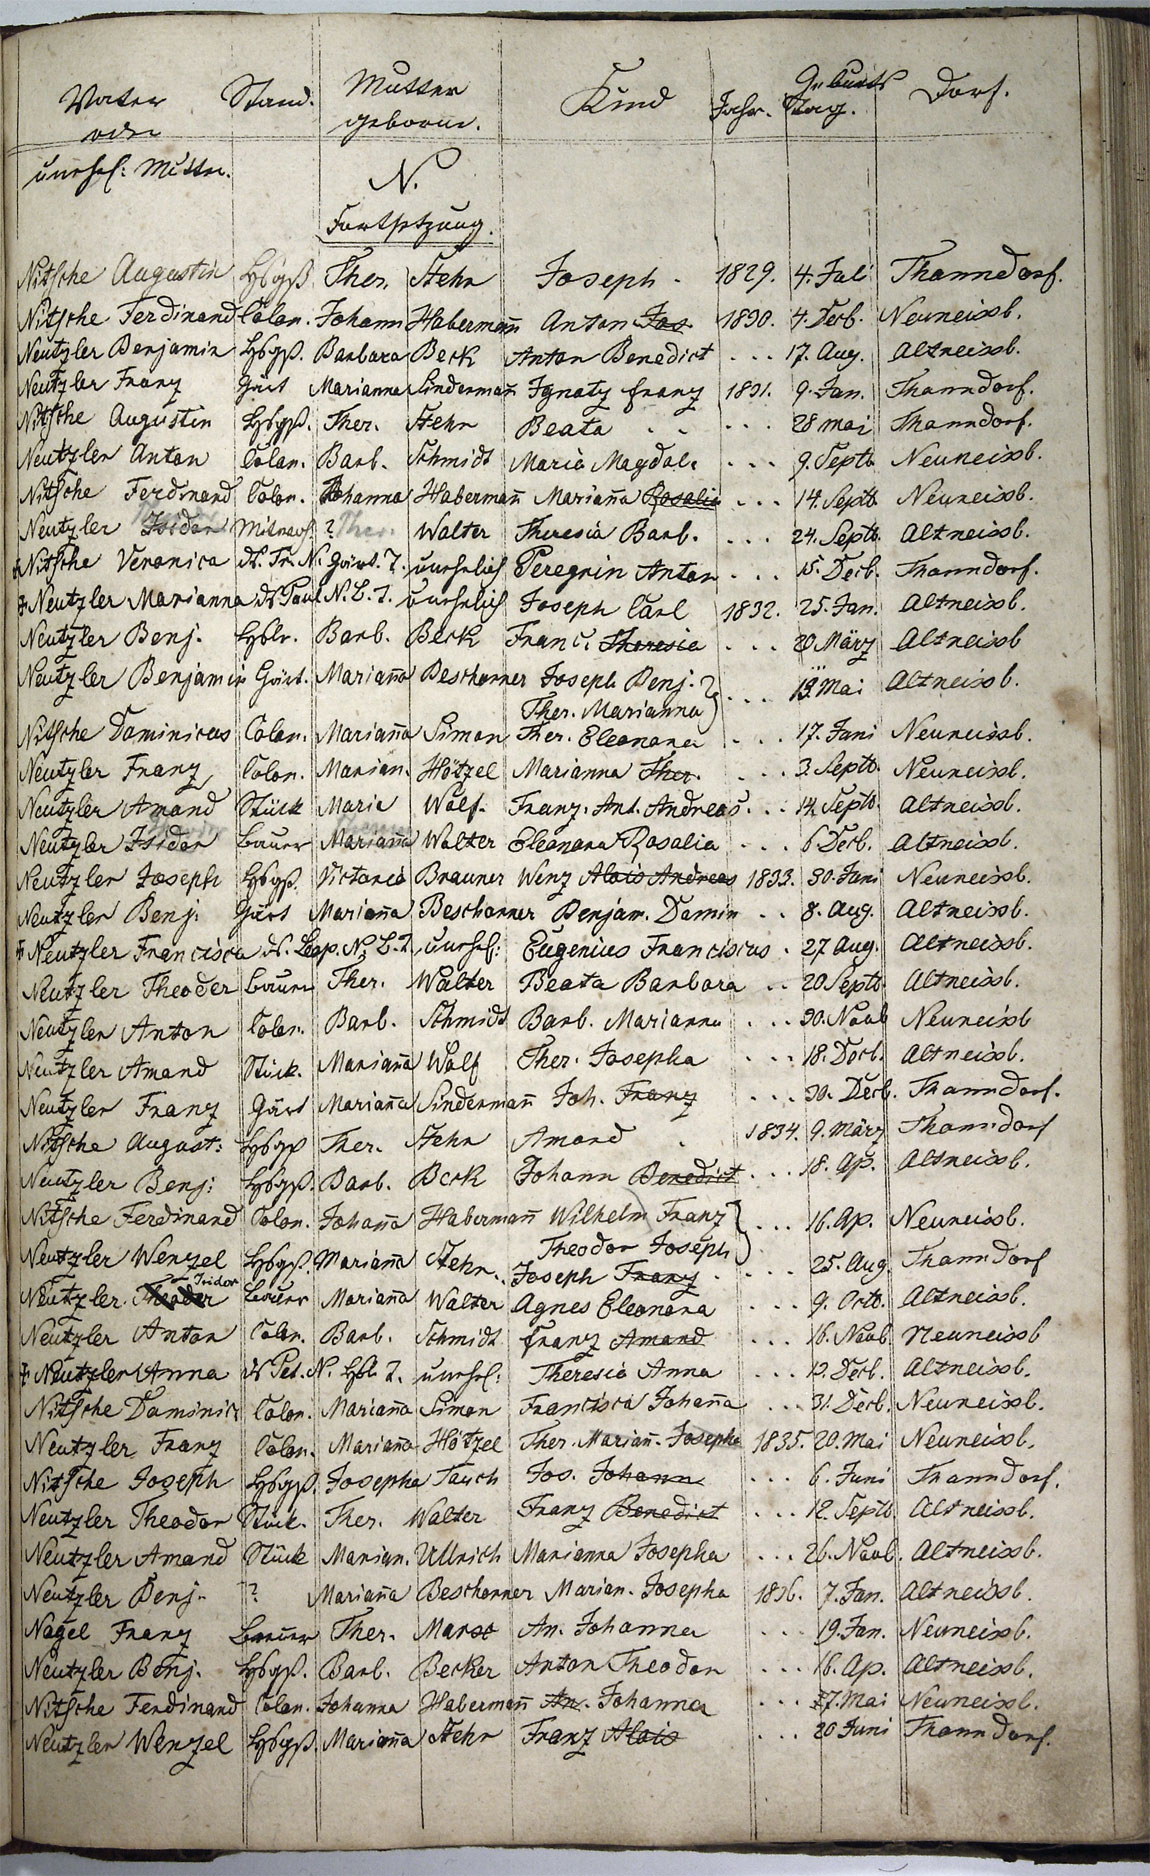 Vater Stand. Mutter Kind Geburts Dorf.
oder geborne. Jahr. Tag.
unehel: Mutter.
N.
Fortsetzung.
Nitsche Augustin Hbgß. Ther. Stehr Joseph 1829. 4. Juli Thanndorf.
Nitsche Ferdinand Colon. Johann Habermañ Anton Jos. 1830. 4. Decb. Neuneissb.
Neutzler Benjamin Hbgß. Barbara Beck Anton Benedict . . . 17. Aug. Altneissb.
Neutzler Franz Gärt Marianna Lindermañ Ignatz Franz 1831. 9. Jan. Thanndorf.
Nitsche Augustin Hbgß. Ther. Stehr Beata . . . 28 Mai Thanndorf.
Neutzler Anton Colon. Barb. Schmidt Maria Magdal. . . . 9. Septb. Neuneissb.
Nitsche Ferdinand Colon. Johanna Habermañ Mariaña Rosalia . . . 14. Septb. Neuneissb.
Neutzler Isidor Mitnach. ? Ther. Walter Theresia Barb. . . . 24. Septb. Altneissb.
+ Nitsche Veronica ds. Fr. N. Gärt. T. unehrlich Peregrin Anton . . . 15. Decb. Thanndorf.
+ Neutzler Marianna ds Paul N. B. T. unehrlich Joseph Carl 1832. 25. Jan. Altneissb.
Neutzler Benj. Hblr. Barb. Beck Franc. Theresia . . . 20. März Altneissb
Neutzler Benjamin Gärt. Mariaña Beschorner Joseph Benj. . . . 13. Mai Altneissb.
Ther. Marianna
Nitsche Dominicus Colon. Mariaña Simon Ther. Eleonora . . . 17. Juni Neuneissb.
Neutzler Franz Colon. Marian. Hötzel Marianna Ther. . . . 3. Septb. Neuneissb.
Neutzler Amand Stück Maria Wolf. Franz. Ant. Andreas . . . 14. Septb. Altneissb.
Neutzler Isidor Bauer Mariaña Walter Eleonora Rosalia . . . 6 Decb. Altneissb.
Neutzler Joseph Hbgß. Victoria Brauner Wenz Alois Andreas 1833. 30. Juni Neuneissb.
Neutzler Benj. Gärt Mariaña Beschorner Benjam. Domin . . 8. Aug. Altneissb.
+ Neutzler Francisca ds. Leop. N. B. T. unehel: Eugenius Franciscus . 27 Aug. Altneissb.
Neutzler Theoder Bauer Ther. Walter Beata Barbara . . 20 Septb. Altneissb.
Neutzler Anton Colon. Barb. Schmidt Barb. Marianna . . . 30. Novb Neuneissb
Neutzler Amand Stück. Mariaña Wolf Ther. Josepha . . . 18. Decb. Altneissb.
Neutzler Franz Gärt Mariaña Lindermañ Joh. Franz . . . 30. Decb. Thanndorf.
Nitsche August: Hbgß Ther. Stehr Amand 1834. 9. März Thanndorf
Neutzler Benj: Hbgß. Barb. Beck Johann Benedict . . . 18. Ap. Altneissb.
Nitsche Ferdinand Colon. Johaña Habermañ Wilhelm Franz . . . 16. Ap. Neuneissb.
Theodor Joseph
Neutzler Wenzel Hbgß. Mariaña Stehr. Joseph Franz . . . 25. Aug. Thanndorf
Neutzler Theoder Isidor Bauer Mariaña Walter Agnes Eleonora . . . 9. Octb. Altneissb.
Neutzler Anton Colon. Barb. Schmidt Franz Amand . . . 16. Novb. Neuneissb
+ Neutzler Anna ds Pet. N. Hbl. T. unehel: Theresia Anna . . . 13. Decb. Altneissb.
Nitsche Dominic Colon. Mariaña Simon Francisca Johaña . . . 31. Decb. Neuneissb.
Neutzler Franz Colon. Mariaña Hötzel Ther. Mariañ. Josepha 1835. 20. Mai Neuneissb.
Nitsche Joseph Hbgß. Josepha Tauch Jos. Johann . . . 6. Juni Thanndorf.
Neutzler Theodor Stück. Ther. Walter Franz Benedict . . . 12. Septb. Altneissb.
Neutzler Amand Stück Marian. Ullrich Marianna Josepha . . . 26. Novb. Altneissb.
Neutzler Benj. ? Mariaña Beschorner Marian. Josepha 1836. 7. Jan. Altneissb.
Nagel Franz Bauer Ther. Marx An. Johanna . . . 19. Jan. Neuneissb.
Neutzler Benj. Hbgß. Barb. Becker Anton Theodor . . . 18. Ap. Altneissb.
Nitsche Ferdinand Colon. Johanna Habermañ An. Johanna . . . 27. Mai Neuneissb.
Neutzler Wenzel Hbgß. Mariaña Stehr Franz Alois . . . 20 Juni Thanndorf.